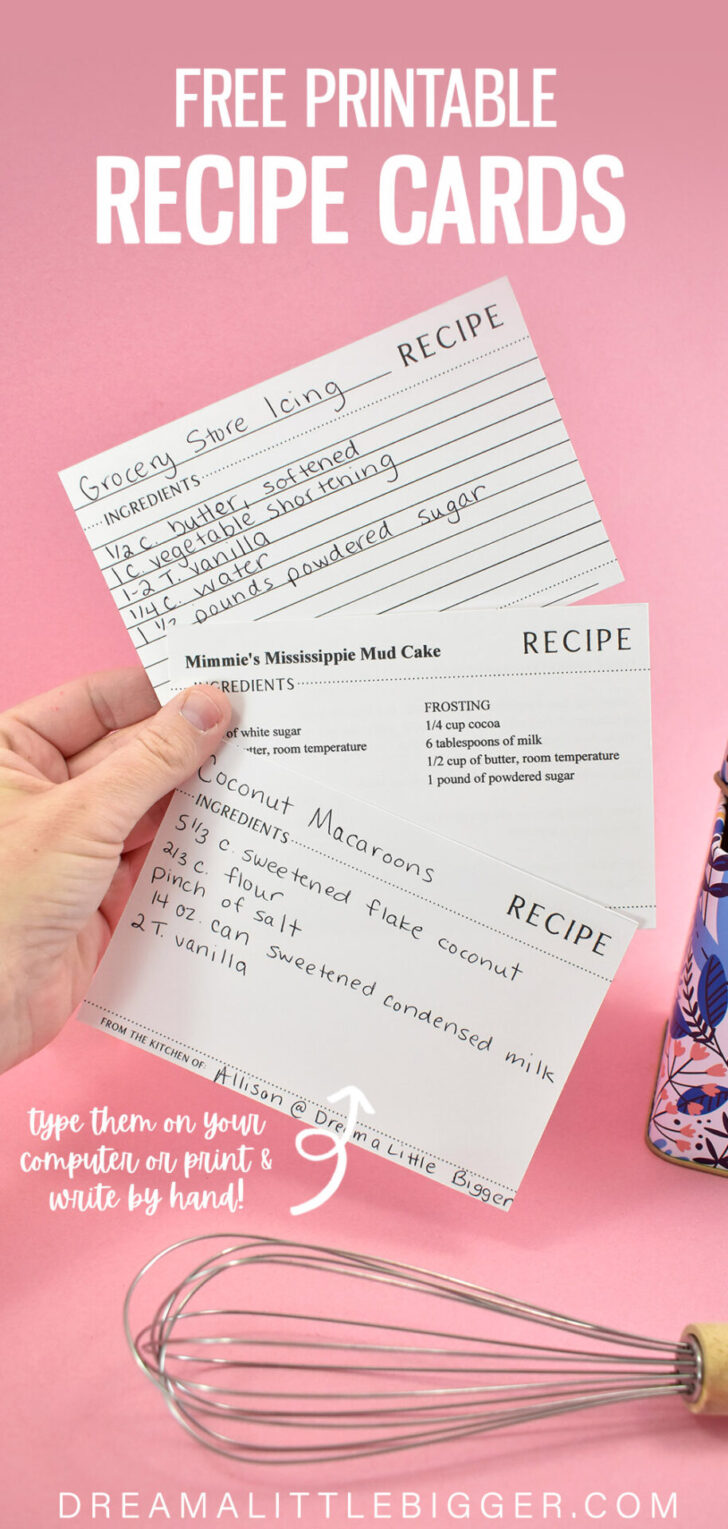 FREE PRINTABLE
RECIPE CARDS
RECIPE
Grocery Store Icing
INGREDIENTS
1/2 c. butter, softened
1 c. vegetable shortening
1-2 T. vanilla
1/4 c. water
1 1/2 pounds powdered sugar
Mimmie's Mississippie Mud Cake
RECIPE
GREDIENTS
of white sugar
tter, room temperature
FROSTING
1/4 cup cocoa
6 tablespoons of milk
1/2 cup of butter, room temperature
1 pound of powdered sugar
Coconut Macaroons
RECIPE
INGREDIENTS
5 1/3 c. sweetened flake coconut
2/3 c. flour
pinch of salt
14 oz. can sweetened condensed milk
2 T. vanilla
FROM THE KITCHEN OF: Allison @ Dream a Little Bigger
type them on your
computer or print &
write by hand!
DREAMALITTLEBIGGER.COM